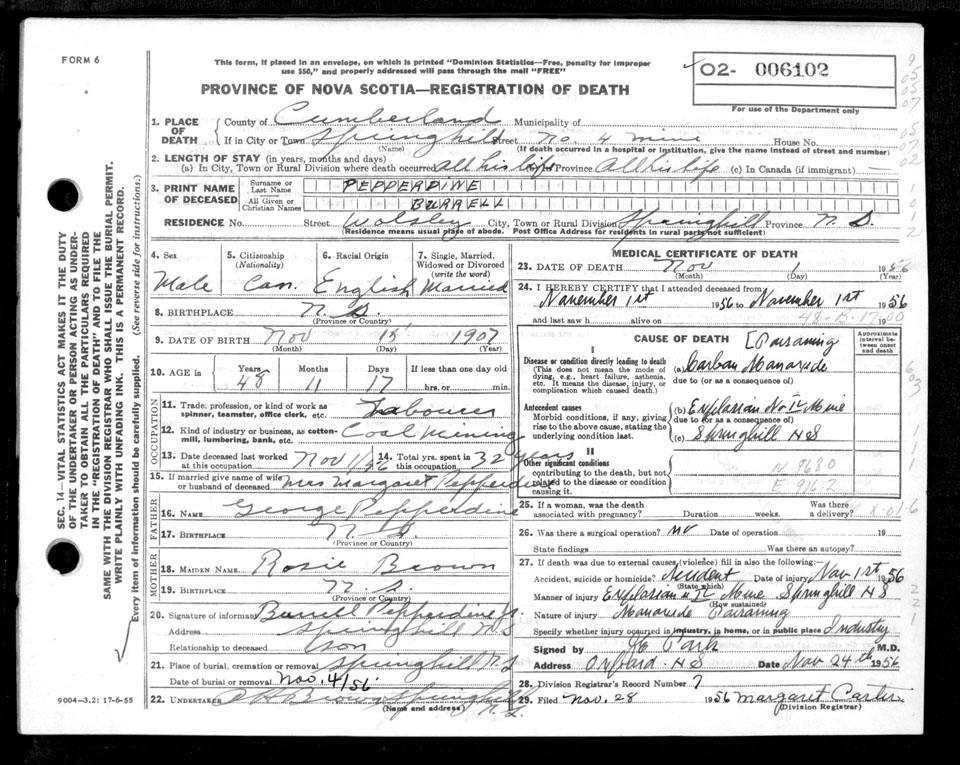 FORM 6
This form, if placed in an envelope, on which is printed "Dominion Statistics—Free, penalty for improper
use $50," and properly addressed will pass through the mail "FREE"
02- 006102
For use of the Department only
PROVINCE OF NOVA SCOTIA—REGISTRATION OF DEATH
SEC. 14—VITAL STATISTICS ACT MAKES IT THE DUTY
OF THE UNDERTAKER OR PERSON ACTING AS UNDER-
TAKER TO OBTAIN ALL THE PARTICULARS REQUIRED
IN THE "REGISTRATION OF DEATH" AND TO FILE THE
SAME WITH THE DIVISION REGISTRAR WHO SHALL ISSUE THE BURIAL PERMIT.
WRITE PLAINLY WITH UNFADING INK. THIS IS A PERMANENT RECORD.
Every item of information should be carefully supplied. (See reverse side for instructions.)
1. PLACE OF DEATH
County of Cumberland Municipality of
If in City or Town Springhill Street No. 4 mine House No.
(Name) (If death occurred in a hospital or institution, give the name instead of street and number)
2. LENGTH OF STAY (in years, months and days)
(a) In City, Town or Rural Division where death occurred all his life (b) Province All his life (c) In Canada (if immigrant)
3. PRINT NAME OF DECEASED
Surname or Last Name PEPPERDINE
All Given or Christian Names BURRELL
RESIDENCE No. Street Wolsley City, Town or Rural Division Springhill Province N.S.
(Residence means usual place of abode. Post Office Address for residents in rural parts not sufficient)
4. Sex Male
5. Citizenship (Nationality) Can.
6. Racial Origin English
7. Single, Married, Widowed or Divorced (write the word) Married
8. BIRTHPLACE N.S.
(Province or Country)
9. DATE OF BIRTH Nov 15 1907
(Month) (Day) (Year)
10. AGE in Years 48 Months 11 Days 17 If less than one day old hrs. or min.
OCCUPATION
11. Trade, profession, or kind of work as spinner, teamster, office clerk, etc. Labourer
12. Kind of industry or business, as cotton-mill, lumbering, bank, etc. Coal Mining
13. Date deceased last worked at this occupation Nov 1/56
14. Total yrs. spent in this occupation 32 years
15. If married give name of wife or husband of deceased Mrs Margaret Pepperdine
FATHER
16. NAME George Pepperdine
17. BIRTHPLACE N.S.
(Province or Country)
MOTHER
18. MAIDEN NAME Rosie Brown
19. BIRTHPLACE N.S.
(Province or Country)
20. Signature of informant Burrell Pepperdine Jr.
Address Springhill N.S
Relationship to deceased Son
21. Place of burial, cremation or removal Springhill N.S
Date of burial or removal Nov. 4/56
22. UNDERTAKER Springhill N.S.
(Name and address)
9004-3.2: 17-6-55
MEDICAL CERTIFICATE OF DEATH
23. DATE OF DEATH Nov 1 1956
(Month) (Day) (Year)
24. I HEREBY CERTIFY that I attended deceased from
November 1st 1956 to November 1st 1956
and last saw h alive on 19
48-B-17-00
CAUSE OF DEATH
Approximate interval between onset and death
I
Disease or condition directly leading to death
(This does not mean the mode of dying, e.g., heart failure, asthenia, etc. It means the disease, injury, or complication which caused death.)
(a) Carbon Monoxide Poisoning
due to (or as a consequence of)
Antecedent causes
Morbid conditions, if any, giving rise to the above cause, stating the underlying condition last.
(b) Explosion No IV Mine
due to (or as a consequence of)
(c) Springhill NS
II
Other significant conditions
contributing to the death, but not related to the disease or condition causing it.
N 9680
E 916.2
25. If a woman, was the death associated with pregnancy? Duration weeks. Was there a delivery?
26. Was there a surgical operation? no Date of operation 19
State findings Was there an autopsy?
27. If death was due to external causes (violence) fill in also the following:
Accident, suicide or homicide? Accident Date of injury Nov 1st 1956
(State which)
Manner of injury Explosion # IV Mine Springhill NS
(How sustained)
Nature of injury Monoxide Poisoning
Specify whether injury occurred in industry, in home, or in public place Industry
Signed by M.D.
Address Oxford - NS Date Nov 24th 1956
28. Division Registrar's Record Number 7
29. Filed Nov. 28 1956 Margaret Carter
(Division Registrar)